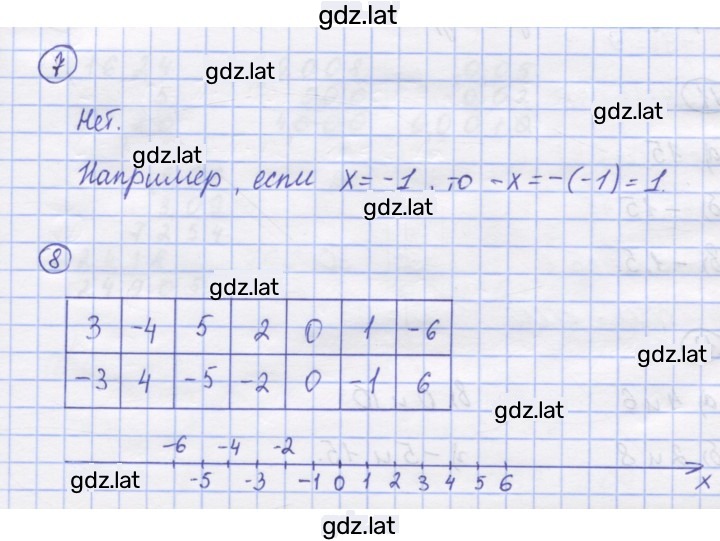 gdz.lat
7
gdz.lat
gdz.lat
Нет.
gdz.lat
Например, если x = -1, то -x = -(-1) = 1.
gdz.lat
8
gdz.lat
3 -4 5 2 0 1 -6
gdz.lat
-3 4 -5 -2 0 -1 6
gdz.lat
-6 -4 -2
gdz.lat -5 -3 -1 0 1 2 3 4 5 6 x
gdz.lat